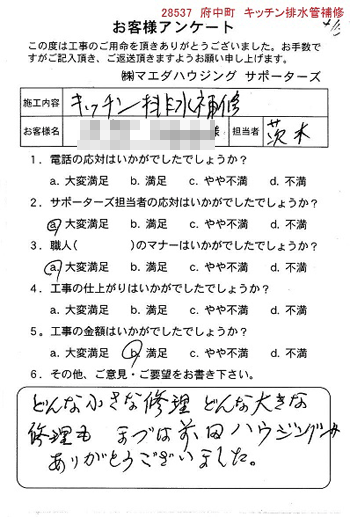 28537 府中町 キッチン排水管補修
お客様アンケート
この度は工事のご用命を頂きありがとうございました。お手数で
すがご記入頂き、ご返送頂きますようお願い申し上げます。
㈱マエダハウジング サポーターズ
施工内容 キッチン排水補修
お客様名 様 担当者 茨木
1．電話の応対はいかがでしたでしょうか？
a. 大変満足 b. 満足 c. やや不満 d. 不満
2．サポーターズ担当者の応対はいかがでしたでしょうか？
a. 大変満足 b. 満足 c. やや不満 d. 不満
3．職人( )のマナーはいかがでしたでしょうか？
a. 大変満足 b. 満足 c. やや不満 d. 不満
4．工事の仕上がりはいかがでしたでしょうか？
a. 大変満足 b. 満足 c. やや不満 d. 不満
5．工事の金額はいかがでしたでしょうか？
a. 大変満足 b. 満足 c. やや不満 d. 不満
6．その他、ご意見・ご要望をお書き下さい。
どんな小さな修理 どんな大きな
修理も まづは前田ハウジング
ありがとうございました。